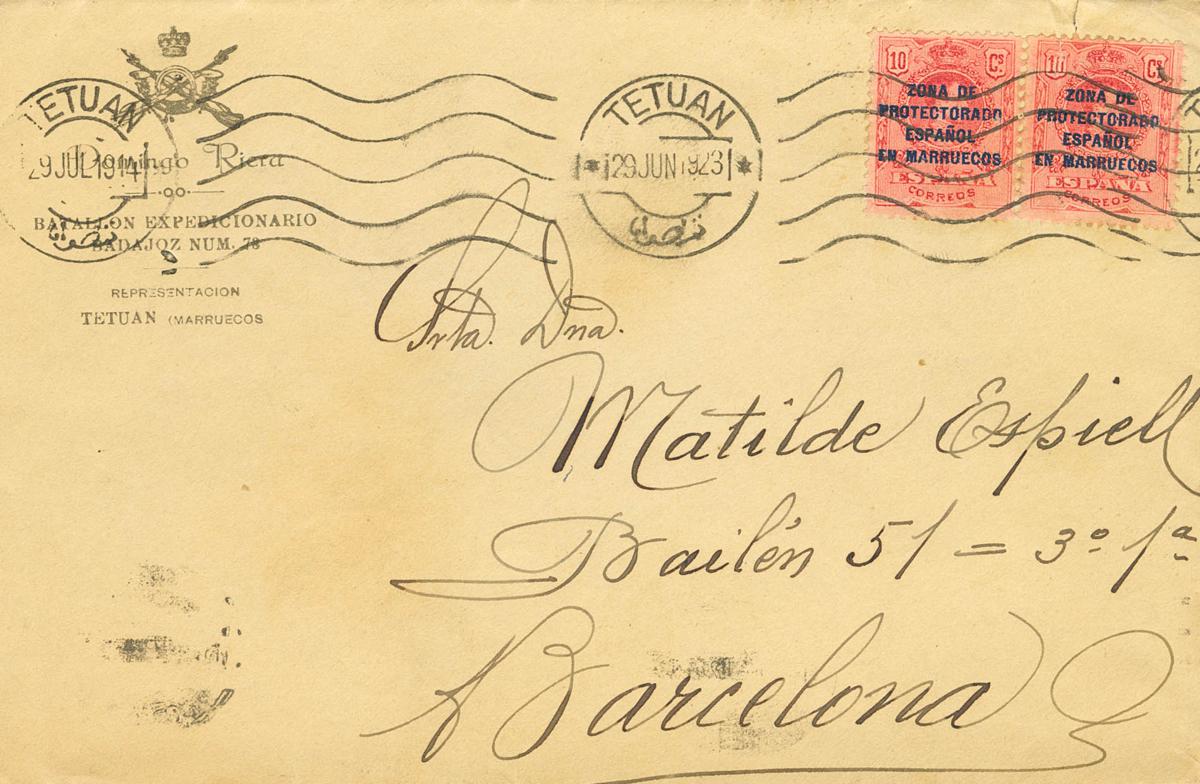 TETUAN
29 JUL 1914
Domingo Riera
BATALLÓN EXPEDICIONARIO
BADAJOZ NUM. 73
REPRESENTACION
TETUAN (MARRUECOS
TETUAN
* 29 JUN 1923 *
10 Cs
ZONA DE
PROTECTORADO
ESPAÑOL
EN MARRUECOS
ESPAÑA
CORREOS
10 Cs
ZONA DE
PROTECTORADO
ESPAÑOL
EN MARRUECOS
ESPAÑA
CORREOS
Srta. Dña.
Matilde Espiell
Bailén 51 = 3º 1ª
Barcelona